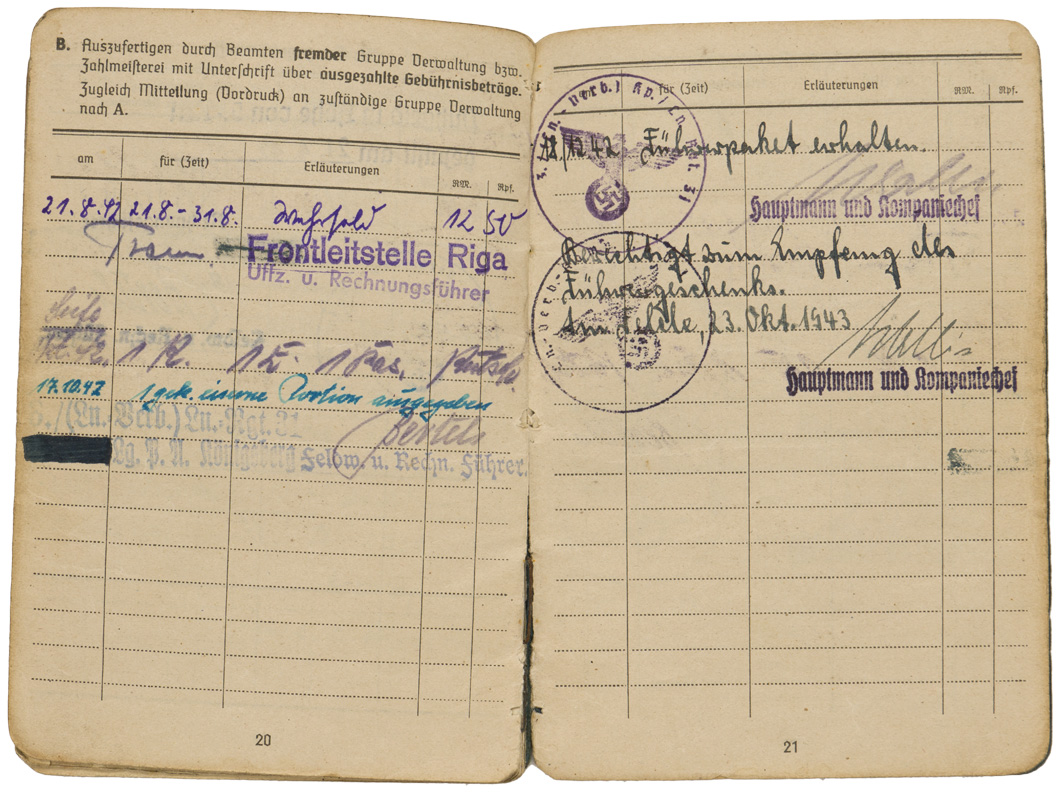 B. Auszufertigen durch Beamten fremder Gruppe Verwaltung bzw.
Zahlmeisterei mit Unterschrift über ausgezahlte Gebührnisbeträge.
Zugleich Mitteilung (Vordruck) an zuständige Gruppe Verwaltung
nach A.
am für (Zeit) Erläuterungen RM. Rpf.
21.8.42 21.8.-31.8. Wehrsold 12 50
Frontleitstelle Riga
Uffz. u. Rechnungsführer
1 R. 1 Z. 1 Ras.
17.10.42 1 gek. eiserne Portion ausgegeben
/(Ln.-Verb.) Ln.-Rgt. 31
Lg. P. A. Königsberg Feldw. u. Rechn. Führer.
20
für (Zeit) Erläuterungen RM. Rpf.
12.42 Führerpaket erhalten.
Hauptmann und Kompaniechef
Berechtigt zum Empfang des
Führergeschenks.
23. Okt. 1943
Hauptmann und Kompaniechef
21